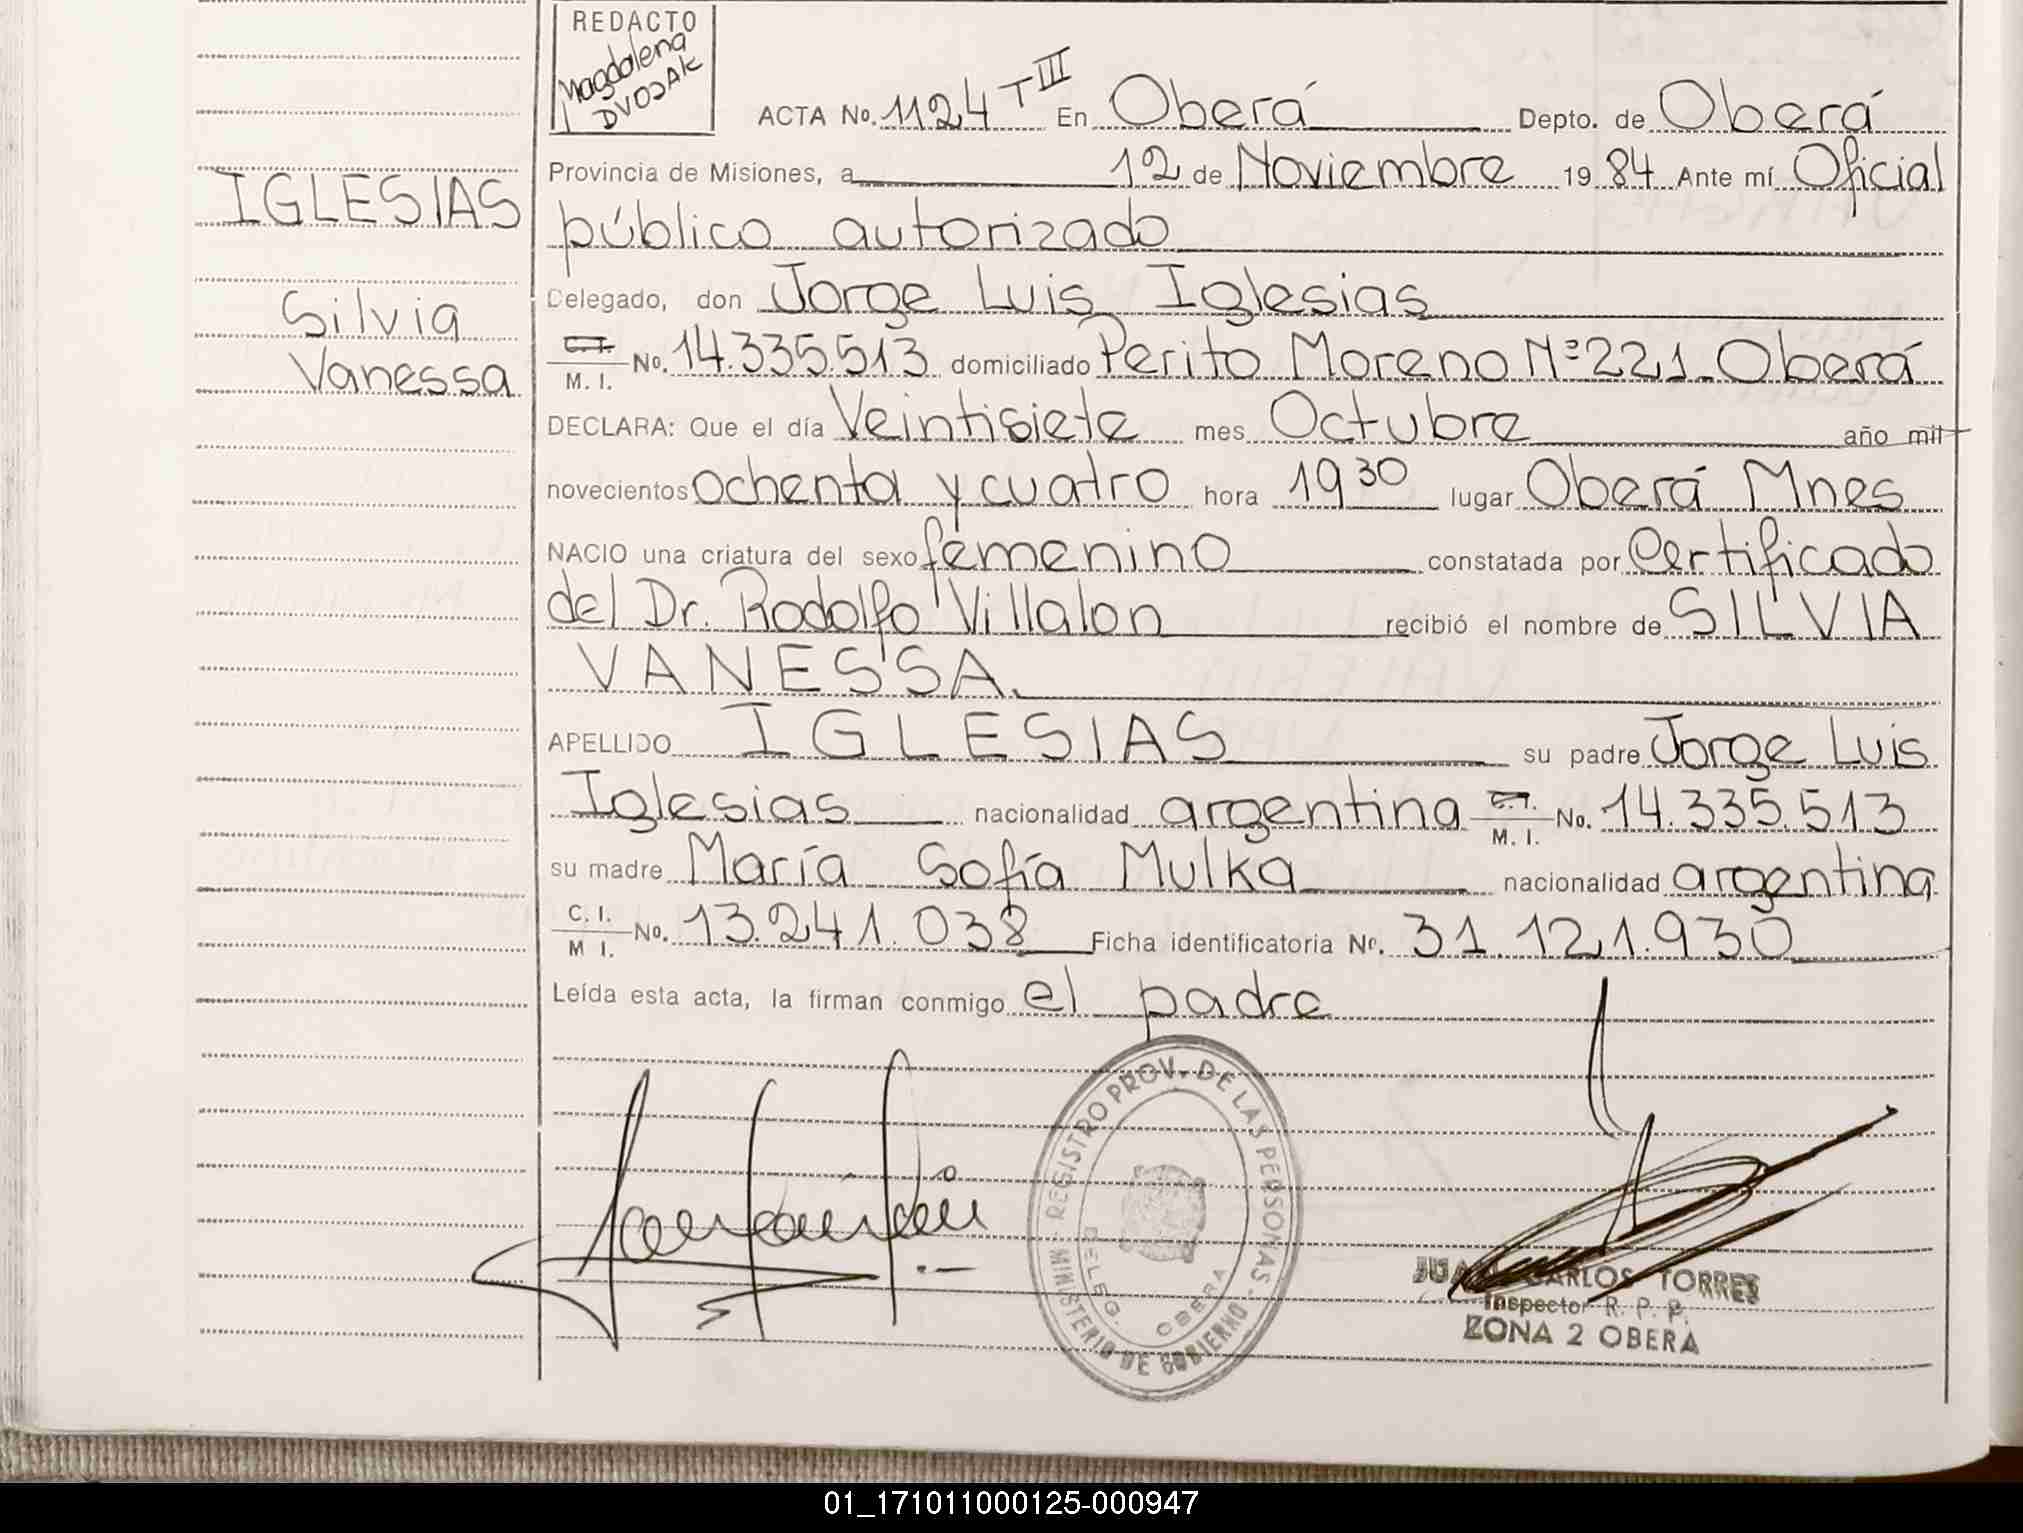 REDACTO
Magdalena
DVOJAK
ACTA No. 1124 T III En Oberá Depto. de Oberá
Provincia de Misiones, a 12 de Noviembre 19 84 Ante mí Oficial
IGLESIAS
público autorizado
Delegado, don Jorge Luis Iglesias
Silvia
Vanessa
C.I. M. I. No. 14.335.513 domiciliado Perito Moreno Nº 221 Oberá
DECLARA: Que el día Veintisiete mes Octubre año mil
novecientos ochenta y cuatro hora 19 30 lugar Oberá Mnes
NACIO una criatura del sexo femenino constatada por Certificado
del Dr. Rodolfo Villalon recibió el nombre de SILVIA
VANESSA.
APELLIDO IGLESIAS su padre Jorge Luis
Iglesias nacionalidad argentina C.I. M. I. No. 14.335.513
su madre María Sofía Mulka nacionalidad argentina
C. I. M I. No. 13.241.038 Ficha identificatoria No. 31.121.930
Leída esta acta, la firman conmigo el padre
MINISTERIO DE GOBIERNO - REGISTRO PROV. DE LAS PERSONAS -
DELEG. OBERA
JUAN CARLOS TORRES
Inspector R. P. P.
ZONA 2 OBERA
01_171011000125-000947